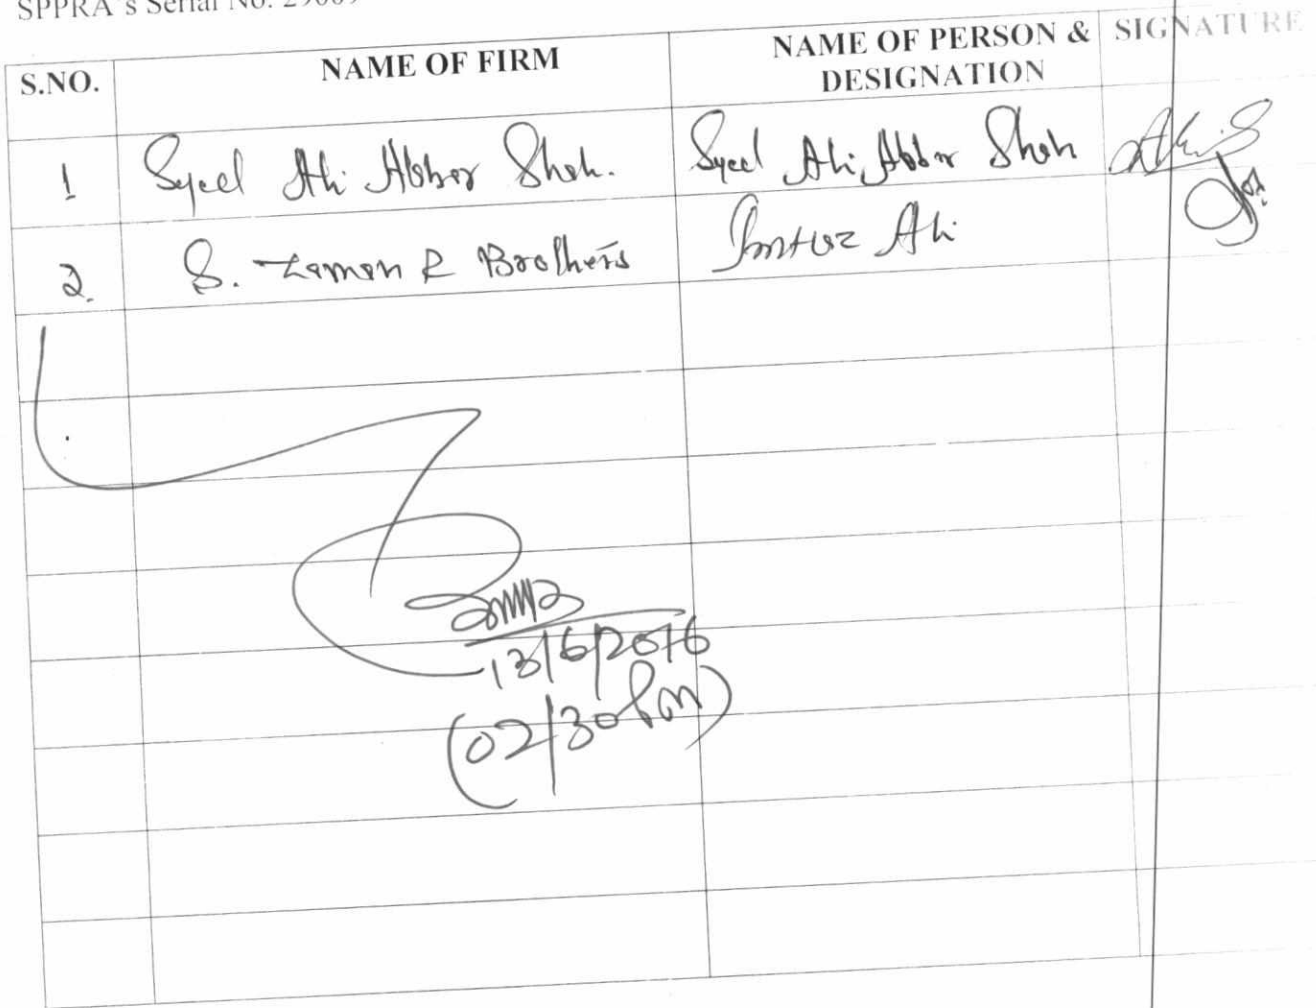 SPPRA's Serial No. 29009
S.NO. NAME OF FIRM NAME OF PERSON & DESIGNATION SIGNATURE
1 Syed Ali Abbas Shah. Syed Ali Abbas Shah
2. S. Zaman & Brothers Imtiaz Ali
13/6/2016
(02/30 pm)